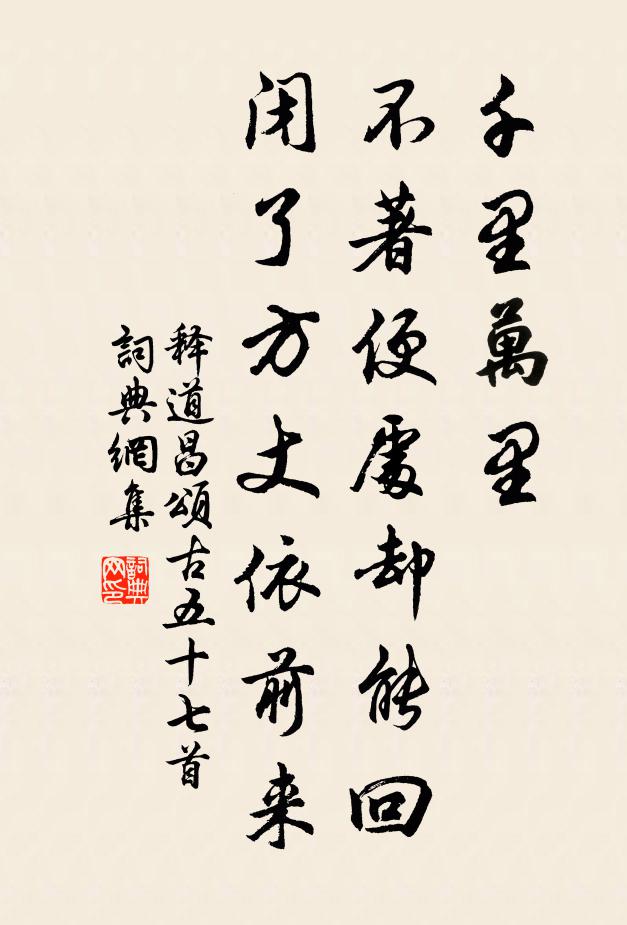 千里萬里
不著便處却能回
闭了方丈依前来
释道昌頌古五十七首
詞典網集
詞典网印